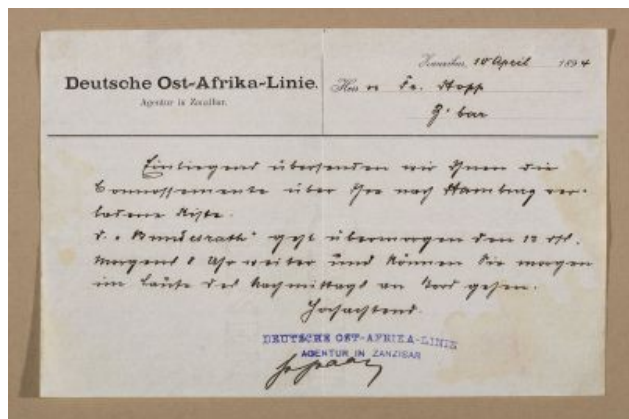 Deutsche Ost-Afrika-Linie.
Agentur in Zanzibar.
Zanzibar, 10 April 1894
Herrn Fr. Stopp
Z'bar
Einliegend übersenden wir Ihnen die
Connossemente über Ihre nach Hamburg ver-
ladene Kiste.
D. "Bundesrath" geht übermorgen den 12 ds.
Morgens 8 Uhr weiter und können Sie morgen
im Laufe des Nachmittags an Bord gehen.
Hochachtend
DEUTSCHE OST-AFRIKA-LINIE
AGENTUR IN ZANZIBAR